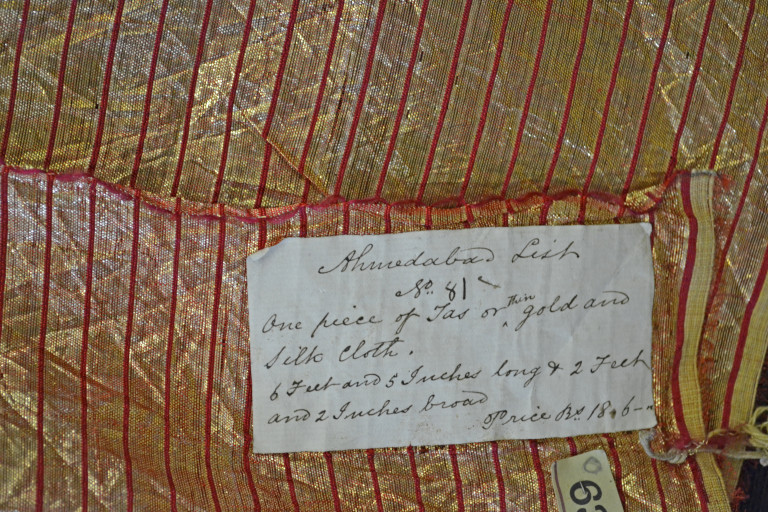 Ahmedabad List
No. 81
One piece of Tas or thin gold and
Silk Cloth.
6 Feet and 5 Inches long & 2 Feet
and 2 Inches broad
Price Rs. 18.6-"